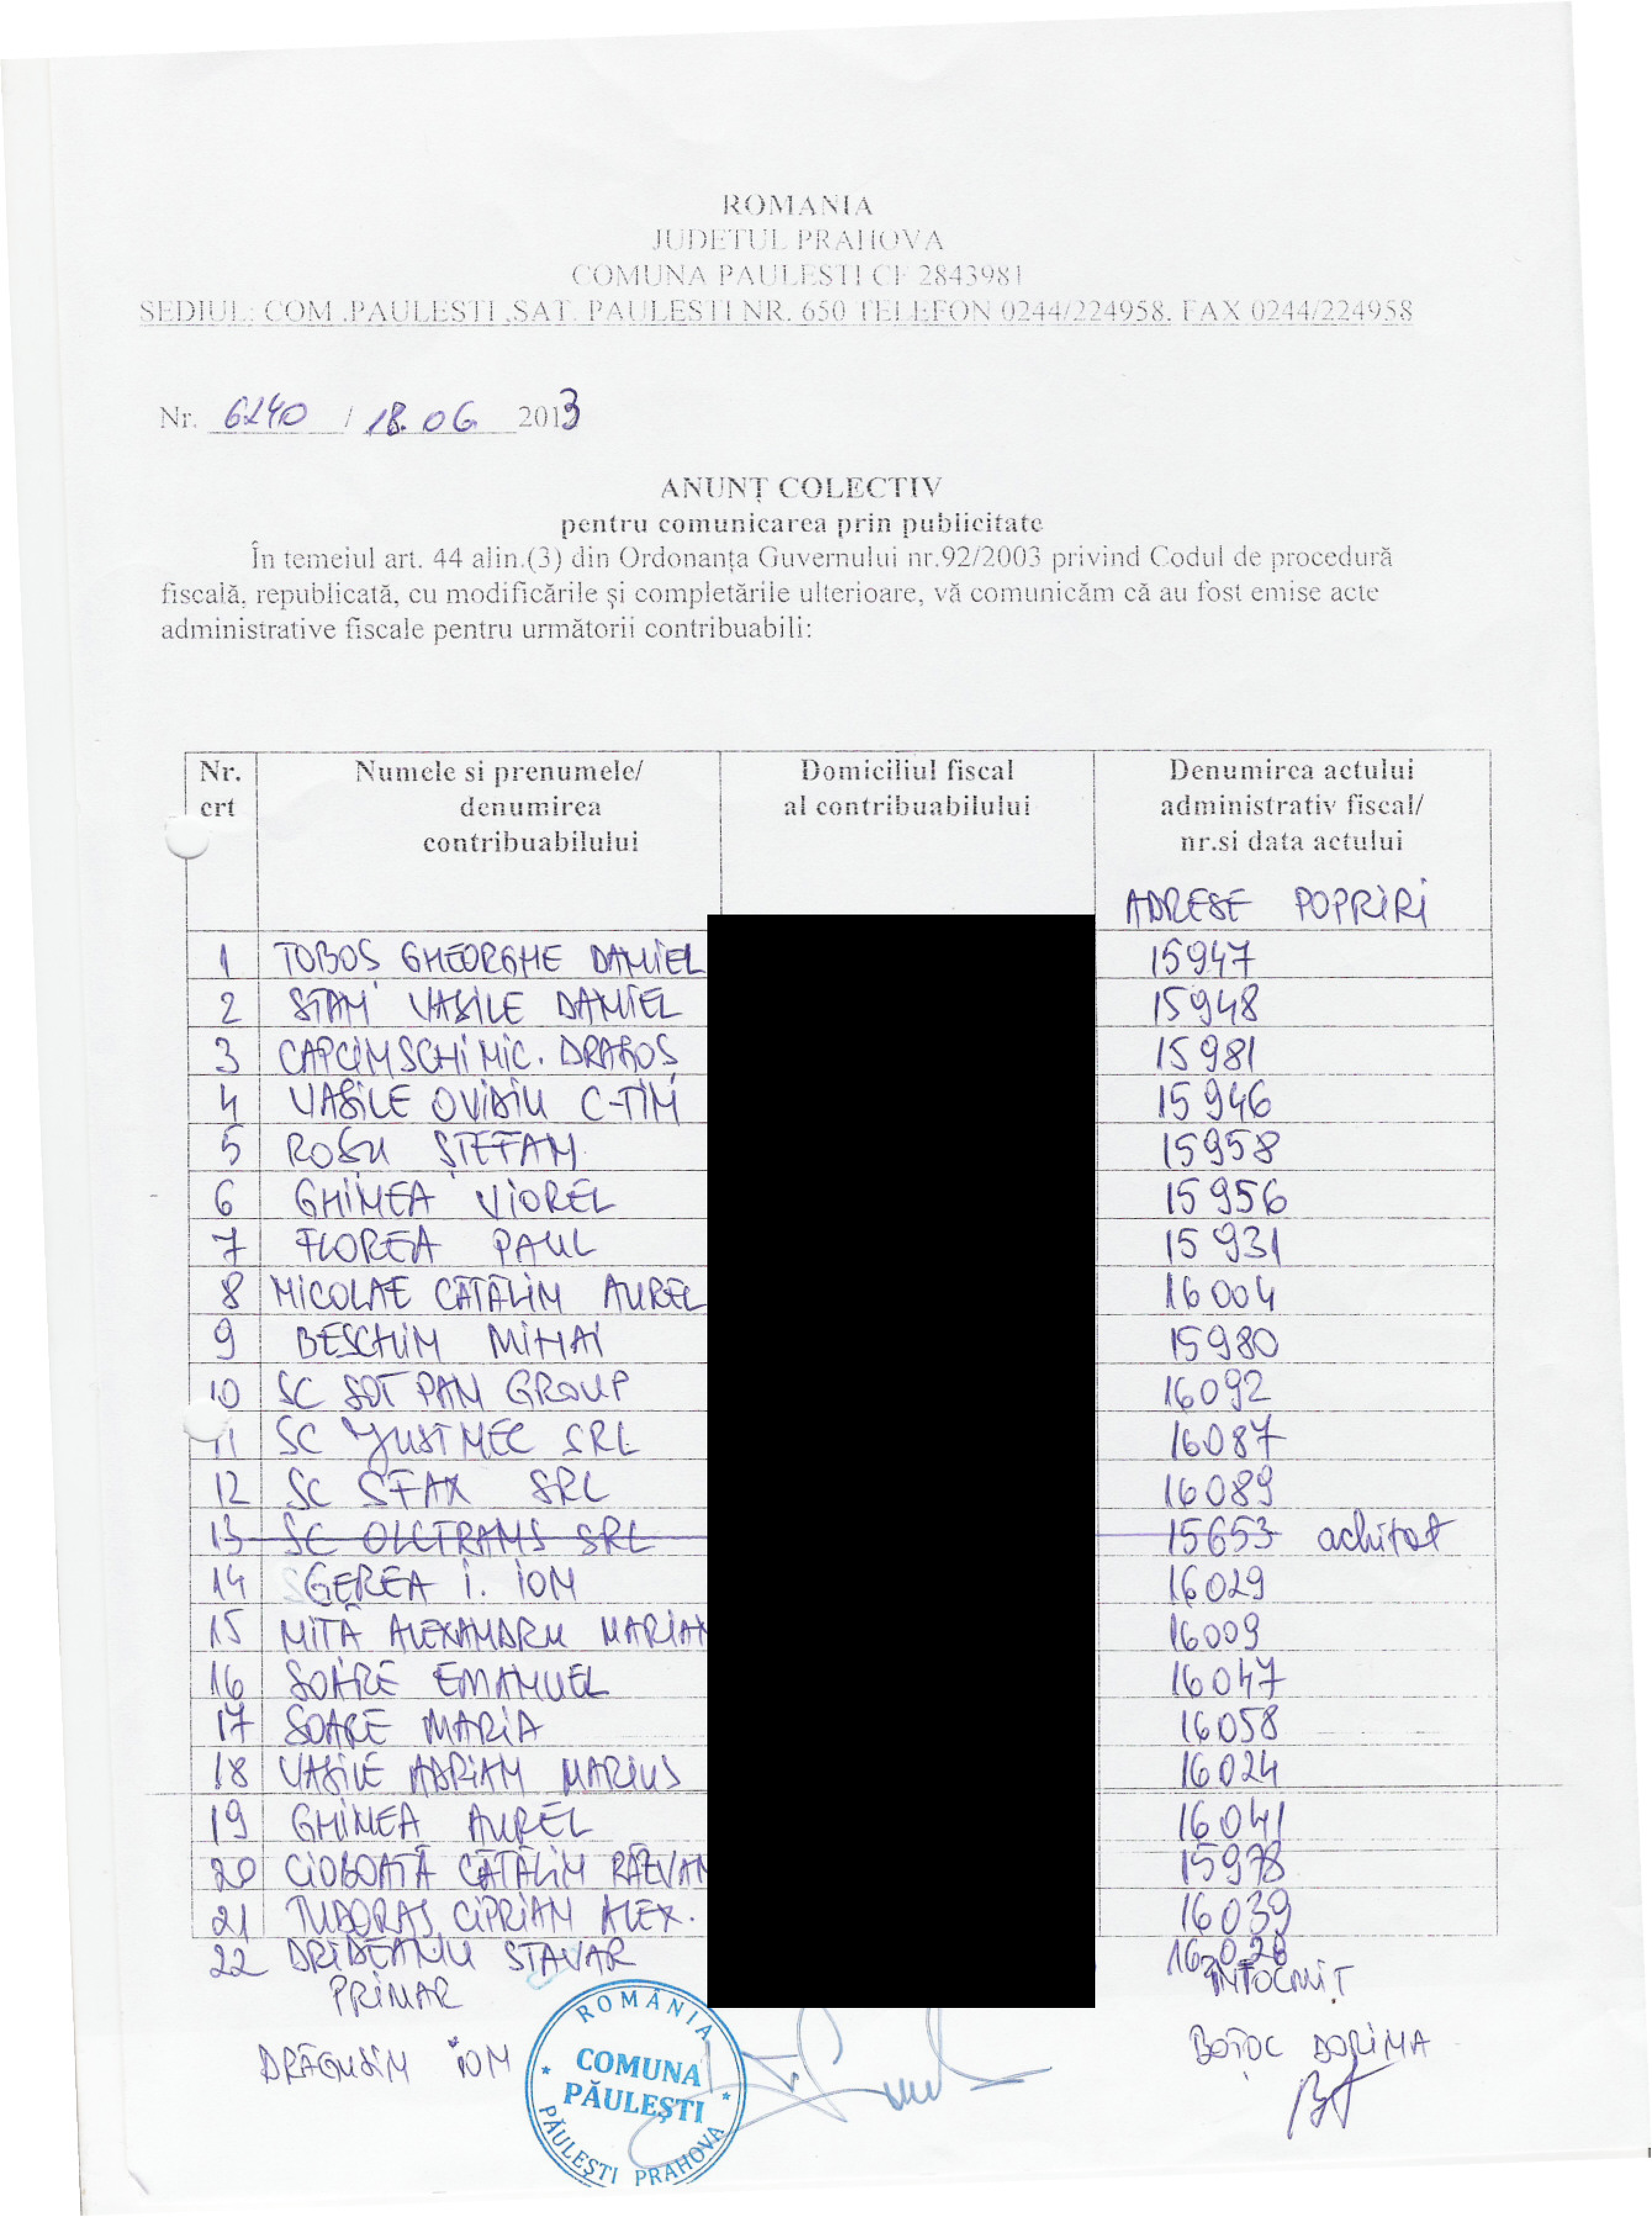 ROMANIA
JUDETUL PRAHOVA
COMUNA PAULESTI CF 2843981
SEDIUL: COM .PAULESTI ,SAT. PAULESTI NR. 650 TELEFON 0244/224958. FAX 0244/224958
Nr. 6240 / 18.06 2013
ANUNȚ COLECTIV
pentru comunicarea prin publicitate
În temeiul art. 44 alin.(3) din Ordonanța Guvernului nr.92/2003 privind Codul de procedură
fiscală, republicată, cu modificările și completările ulterioare, vă comunicăm că au fost emise acte
administrative fiscale pentru următorii contribuabili:
Nr. crt Numele si prenumele/ denumirea contribuabilului Domiciliul fiscal al contribuabilului Denumirea actului administrativ fiscal/ nr.si data actului
ADRESE POPRIRI
1 TOBOȘ GHEORGHE DANIEL 15947
2 STAN VASILE DANIEL 15948
3 CAPCINSCHI NIC. DRAGOȘ 15981
4 VASILE OVIDIU C-TIN 15946
5 ROȘU ȘTEFAN 15958
6 GHINEA VIOREL 15956
7 FLOREA PAUL 15931
8 NICOLAE CĂTĂLIN AUREL 16004
9 BESCHIN MIHAI 15980
10 SC SOT PAN GROUP 16092
11 SC JUSTMEC SRL 16087
12 SC SFAX SRL 16089
13 SC OLCTRANS SRL 15653 achitat
14 GEREA I. ION 16029
15 MITĂ ALEXANDRU MARIAN 16009
16 SOARE EMANUEL 16047
17 SOARE MARIA 16058
18 VASILE ADRIAN MARIUS 16024
19 GHINEA AUREL 16041
20 CIOBOATĂ CĂTĂLIN RĂZVAN 15978
21 TUDORAȘ CIPRIAN ALEX. 16039
22 DRIDEANU STAVAR 16028
PRIMAR ÎNTOCMIT
DRĂGUȘIN ION BOȚOC DORINA
ROMÂNIA
COMUNA
PĂULEȘTI
PĂULEȘTI PRAHOVA